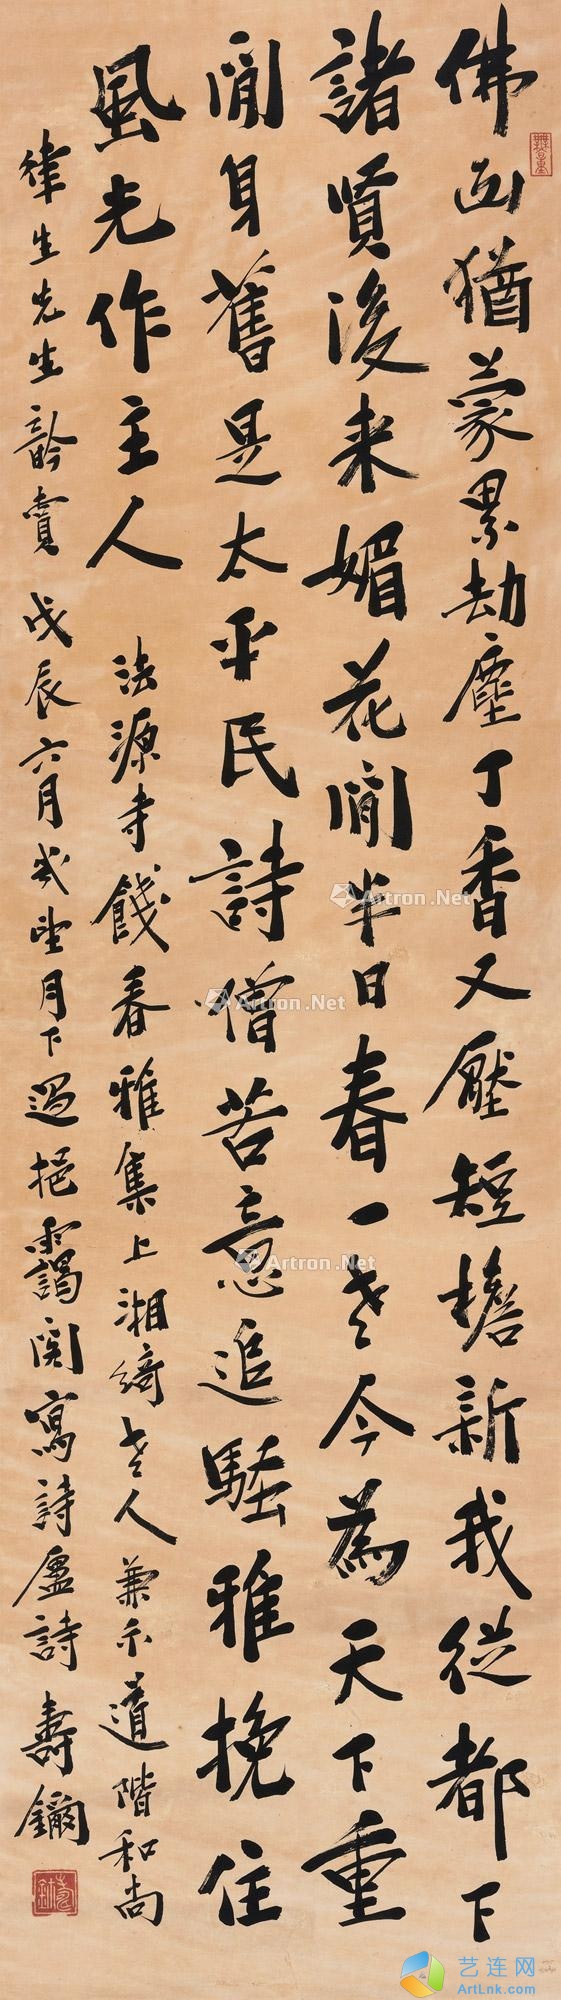 佛面猶蒙累劫塵丁香又壓短檐新我從都下
諸賢後来媚花間半日春一老今為天下重
閒身舊是太平民詩僧苦意追騷雅挽住
風光作主人
法源寺餞春雅集上湘綺老人兼示道階和尚
律生先生龄賣戊辰六月望月下過挹靄閣寫詩廬詩壽鑈
Artron.Net
Artron.Net
Artron.Net
艺连网
ArtLnk.com